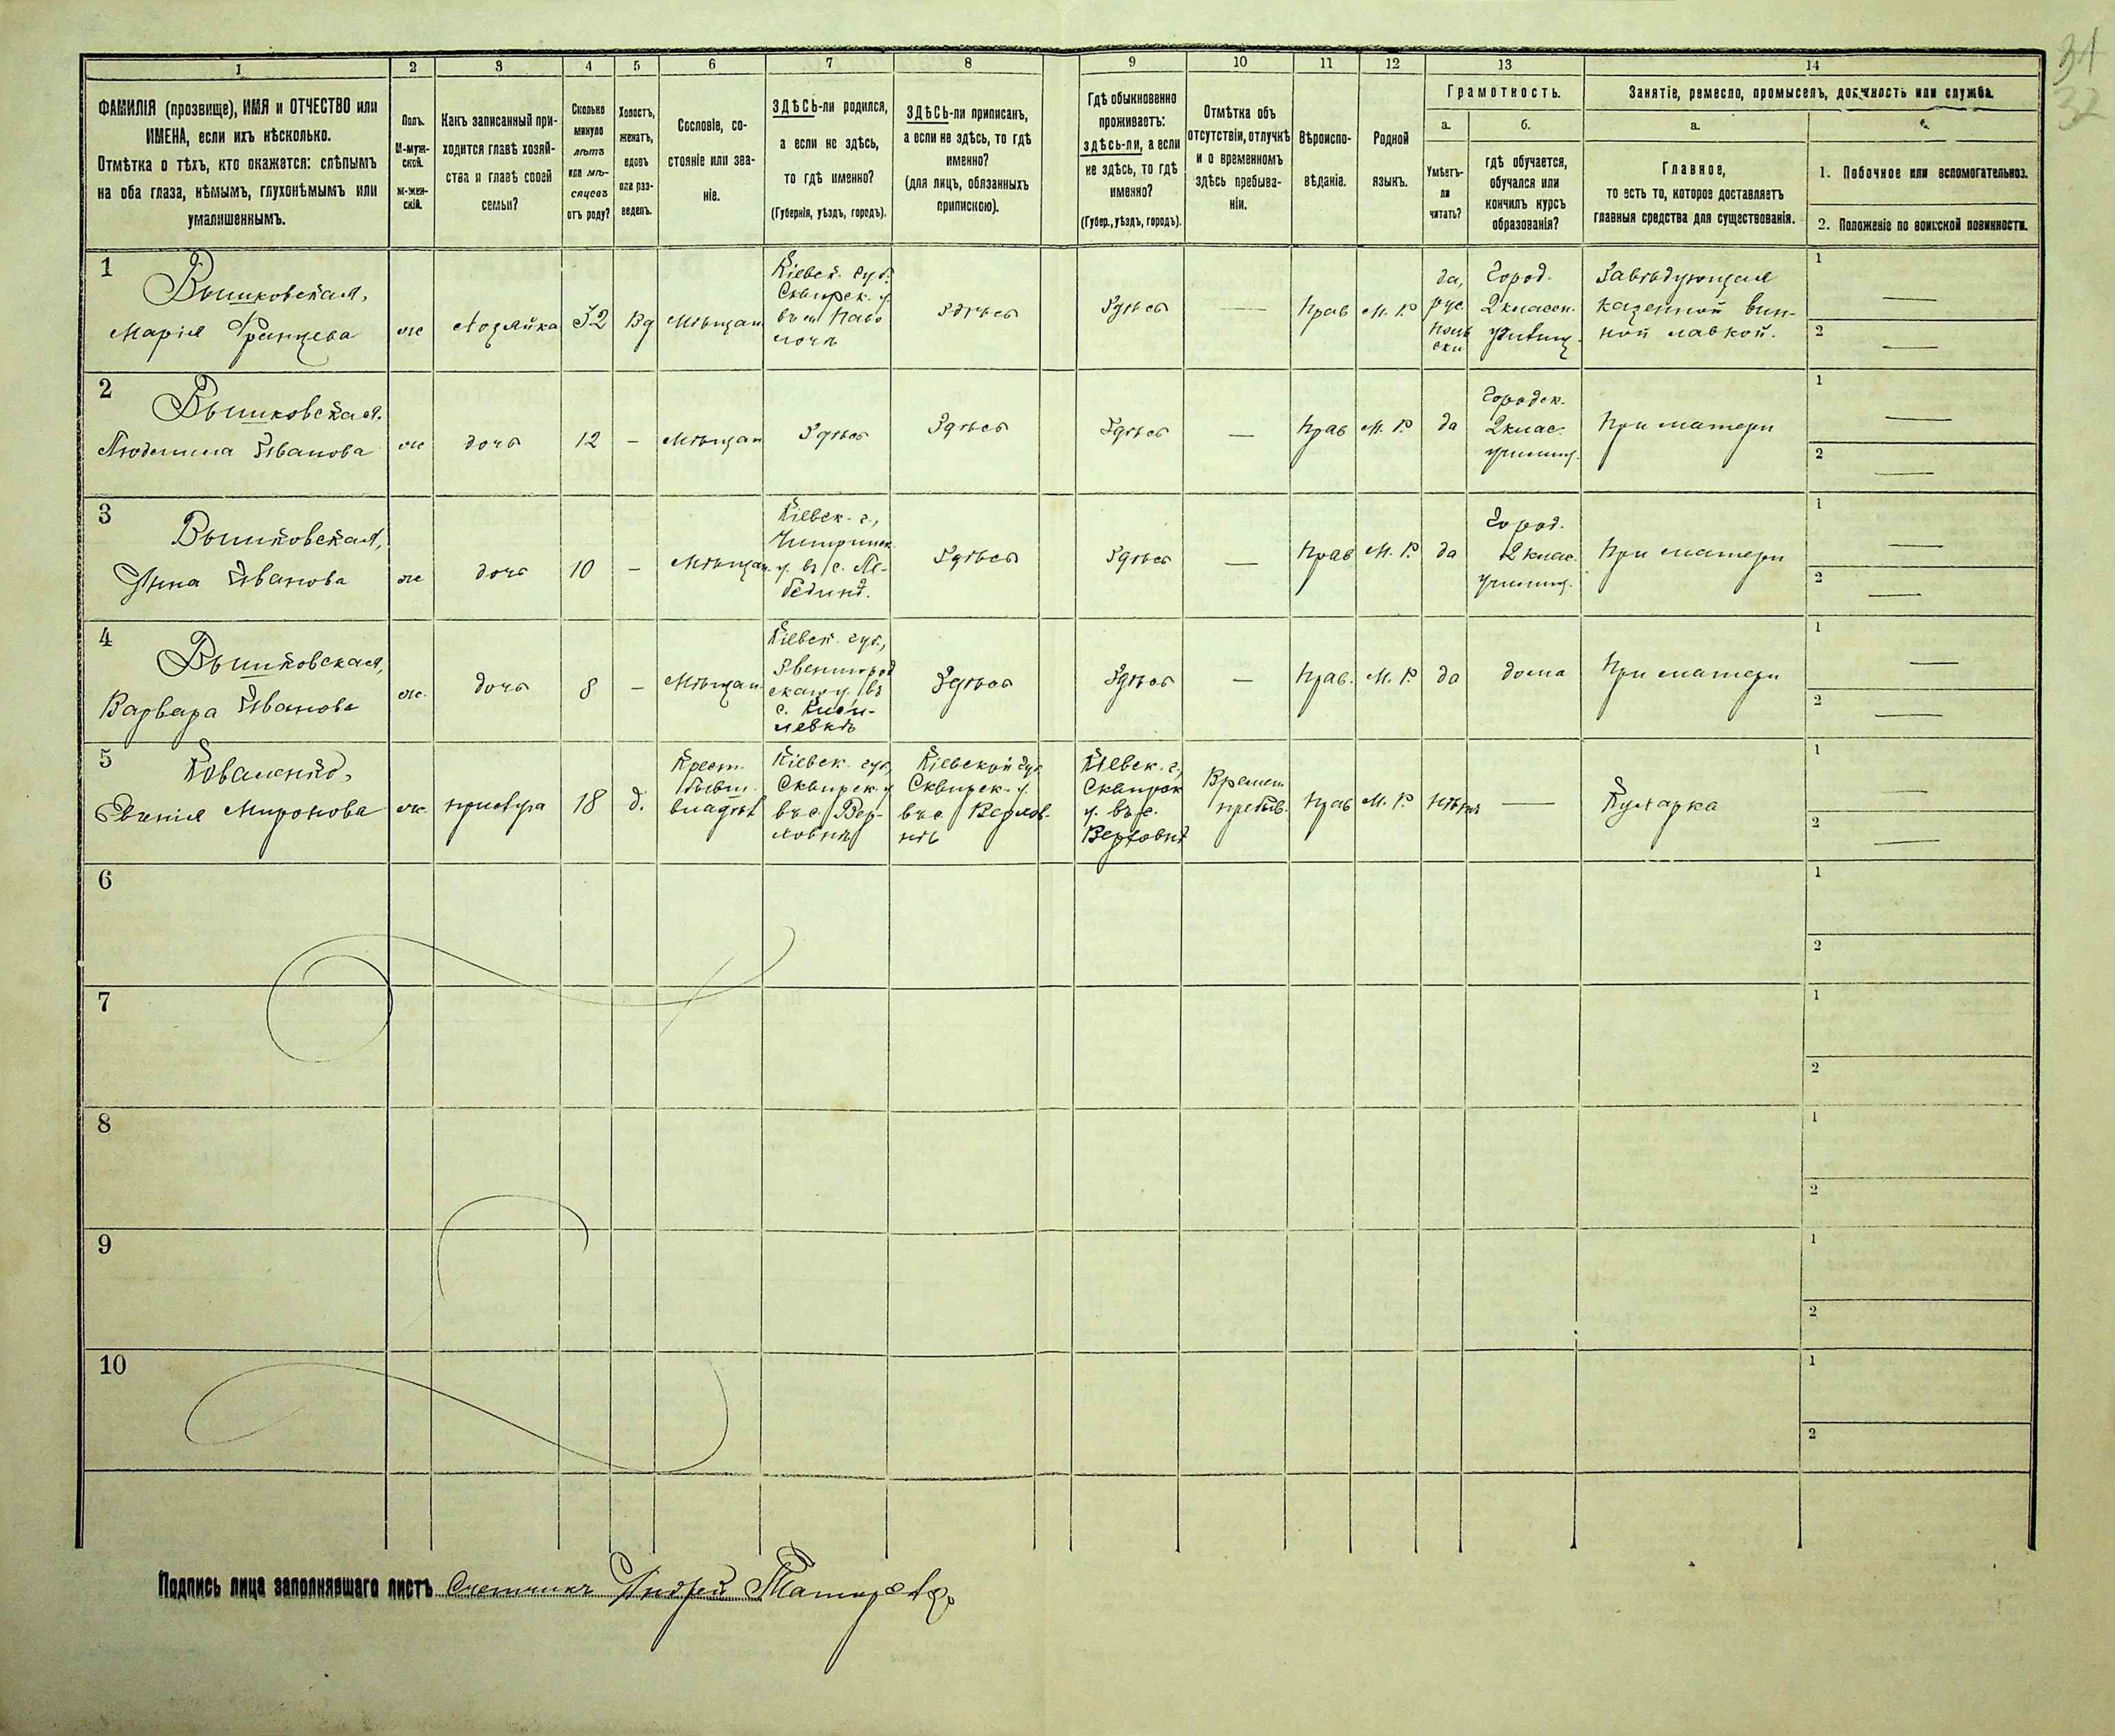 31
32
1 2 3 4 5 6 7 8 9 10 11 12 13 14
ФАМИЛІЯ (прозвище), ИМЯ и ОТЧЕСТВО или
ИМЕНА, если ихъ нѣсколько.
Отмѣтка о тѣхъ, кто окажется: слѣпымъ
на оба глаза, нѣмымъ, глухонѣмымъ или
умалишеннымъ.
Полъ.
М-муж-
ской.
ж-жен-
скій.
Какъ записанный при-
ходится главѣ хозяй-
ства и главѣ своей
семьи?
Сколько
минуло
лѣтъ
или мѣ-
сяцевъ
отъ роду?
Холостъ,
женатъ,
вдовъ
или раз-
веденъ.
Сословіе, со-
стояніе или зва-
ніе.
ЗДѢСЬ-ли родился,
а если не здѣсь,
то гдѣ именно?
(Губернія, уѣздъ, городъ).
ЗДѢСЬ-ли приписанъ,
а если не здѣсь, то гдѣ
именно?
(для лицъ, обязанныхъ
припискою).
Гдѣ обыкновенно
проживаетъ:
здѣсь-ли, а если
не здѣсь, то гдѣ
именно?
(Губер., уѣздъ, городъ).
Отмѣтка объ
отсутствіи, отлучкѣ
и о временномъ
здѣсь пребыва-
ніи.
Вѣроиспо-
вѣданіе.
Родной
языкъ.
Грамотность.
а.
Умѣетъ-
ли
читать?
б.
гдѣ обучается,
обучался или
кончилъ курсъ
образованія?
Занятіе, ремесло, промыселъ, должность или служба.
а.
Главное,
то есть то, которое доставляетъ
главныя средства для существованія.
1. Побочное или вспомогательное.
2. Положеніе по воинской повинности.
1
Вышковская,
Марія Францева
ж
Хозяйка
32
Вд
Мѣщан
Кіевск. губ.
Сквирск. у.
въ м. Паво
лочи
Здѣсь
Здѣсь
—
Прав
М. Р.
да,
рус
поль
ски
Город.
2 классн.
училищ.
Завѣдующая
казенной вин-
ной лавкой.
1 —
2 —
2
Вышковская.
Людмила Иванова
ж
дочь
12
—
Мѣщан
Здѣсь
Здѣсь
Здѣсь
—
Прав
М. Р.
да
Городск.
2 клас.
училищ.
При матери
1 —
2 —
3
Вышковская,
Анна Иванова
ж
дочь
10
—
Мѣщан.
Кіевск. г.,
Чигиринск.
у. въ с. Ле-
бедин.
Здѣсь
Здѣсь
—
Прав
М. Р.
да
Город.
2 клас.
училищ.
При матери
1 —
2 —
4
Вышковская,
Варвара Иванова
ж.
дочь
8
—
Мѣщан.
Кіевск. губ.,
Звенигород
скаго у. въ
с. Кисе-
левкѣ
Здѣсь
Здѣсь
—
Прав.
М. Р.
да
дома
При матери
1 —
2 —
5
Коваленко,
Евгенія Миронова
ж.
прислуга
18
д.
Крест.
бывш.
владѣл
Кіевск. губ,
Сквирск. у
въ с. Вер-
ховнѣ
Кіевской губ
Сквирск. у.
въ с. Верхов-
нѣ
Кіевск. г.,
Сквирск
у. въ с.
Верховнѣ
Времен.
пребыв.
Прав
М. Р.
нѣтъ
—
Кухарка
1 —
2 —
6
1
2
7
1
2
8
1
2
9
1
2
10
1
2
Подпись лица заполнявшаго листъ Счетчикъ Андрей